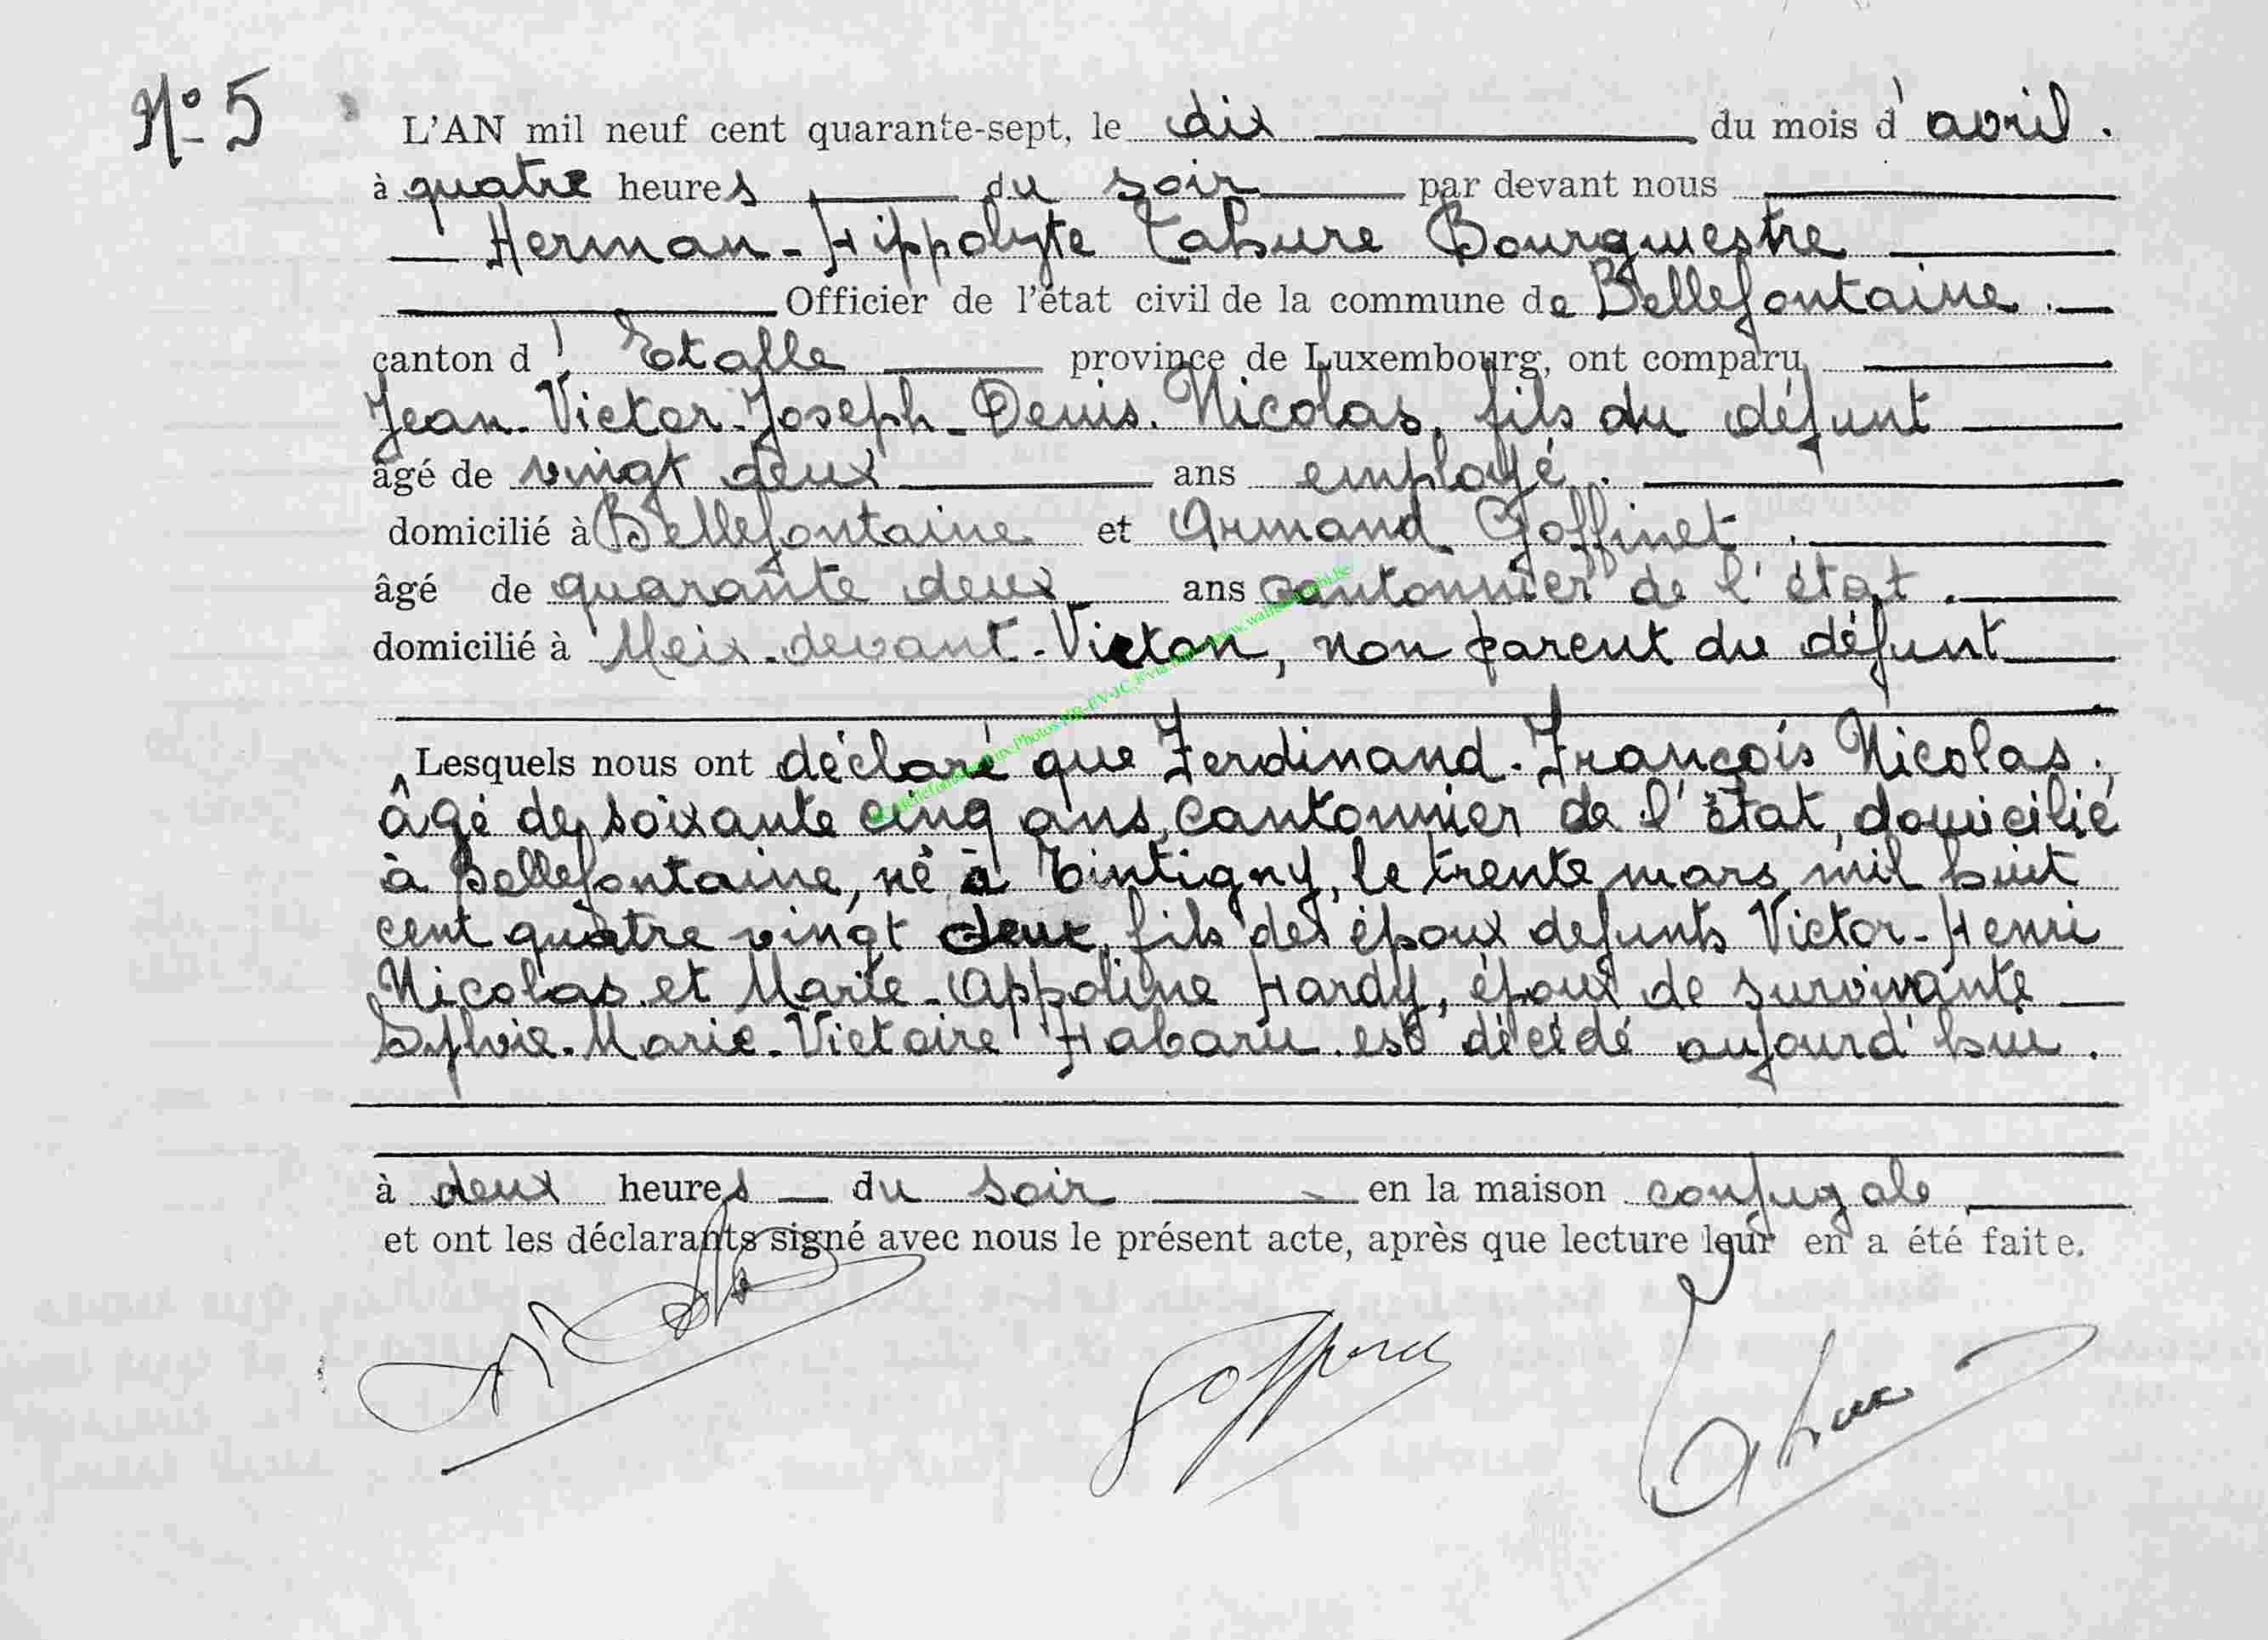 N° 5
L'AN mil neuf cent quarante-sept, le dix du mois d'avril.
à quatre heures du soir par devant nous
Herman-Hippolyte Lahure Bourgmestre
Officier de l'état civil de la commune de Bellefontaine.
canton d'Etalle province de Luxembourg, ont comparu
Jean-Victor-Joseph-Denis Nicolas, fils du défunt
âgé de vingt deux ans employé.
domicilié à Bellefontaine et Armand Goffinet.
âgé de quarante deux ans cantonnier de l'état.
domicilié à Meix-devant-Virton, non parent du défunt
Lesquels nous ont déclaré que Ferdinand-François Nicolas,
âgé de soixante cinq ans, cantonnier de l'état, domicilié
à Bellefontaine, né à Tintigny, le trente mars mil huit
cent quatre vingt deux, fils des époux defunts Victor-Henri
Nicolas et Marie-Appoline Hardy, époux de survivante
Sylvie-Marie-Victoire Habaru est décédé aujourd'hui.
à deux heures du soir en la maison conjugale
et ont les déclarants signé avec nous le présent acte, après que lecture leur en a été faite.